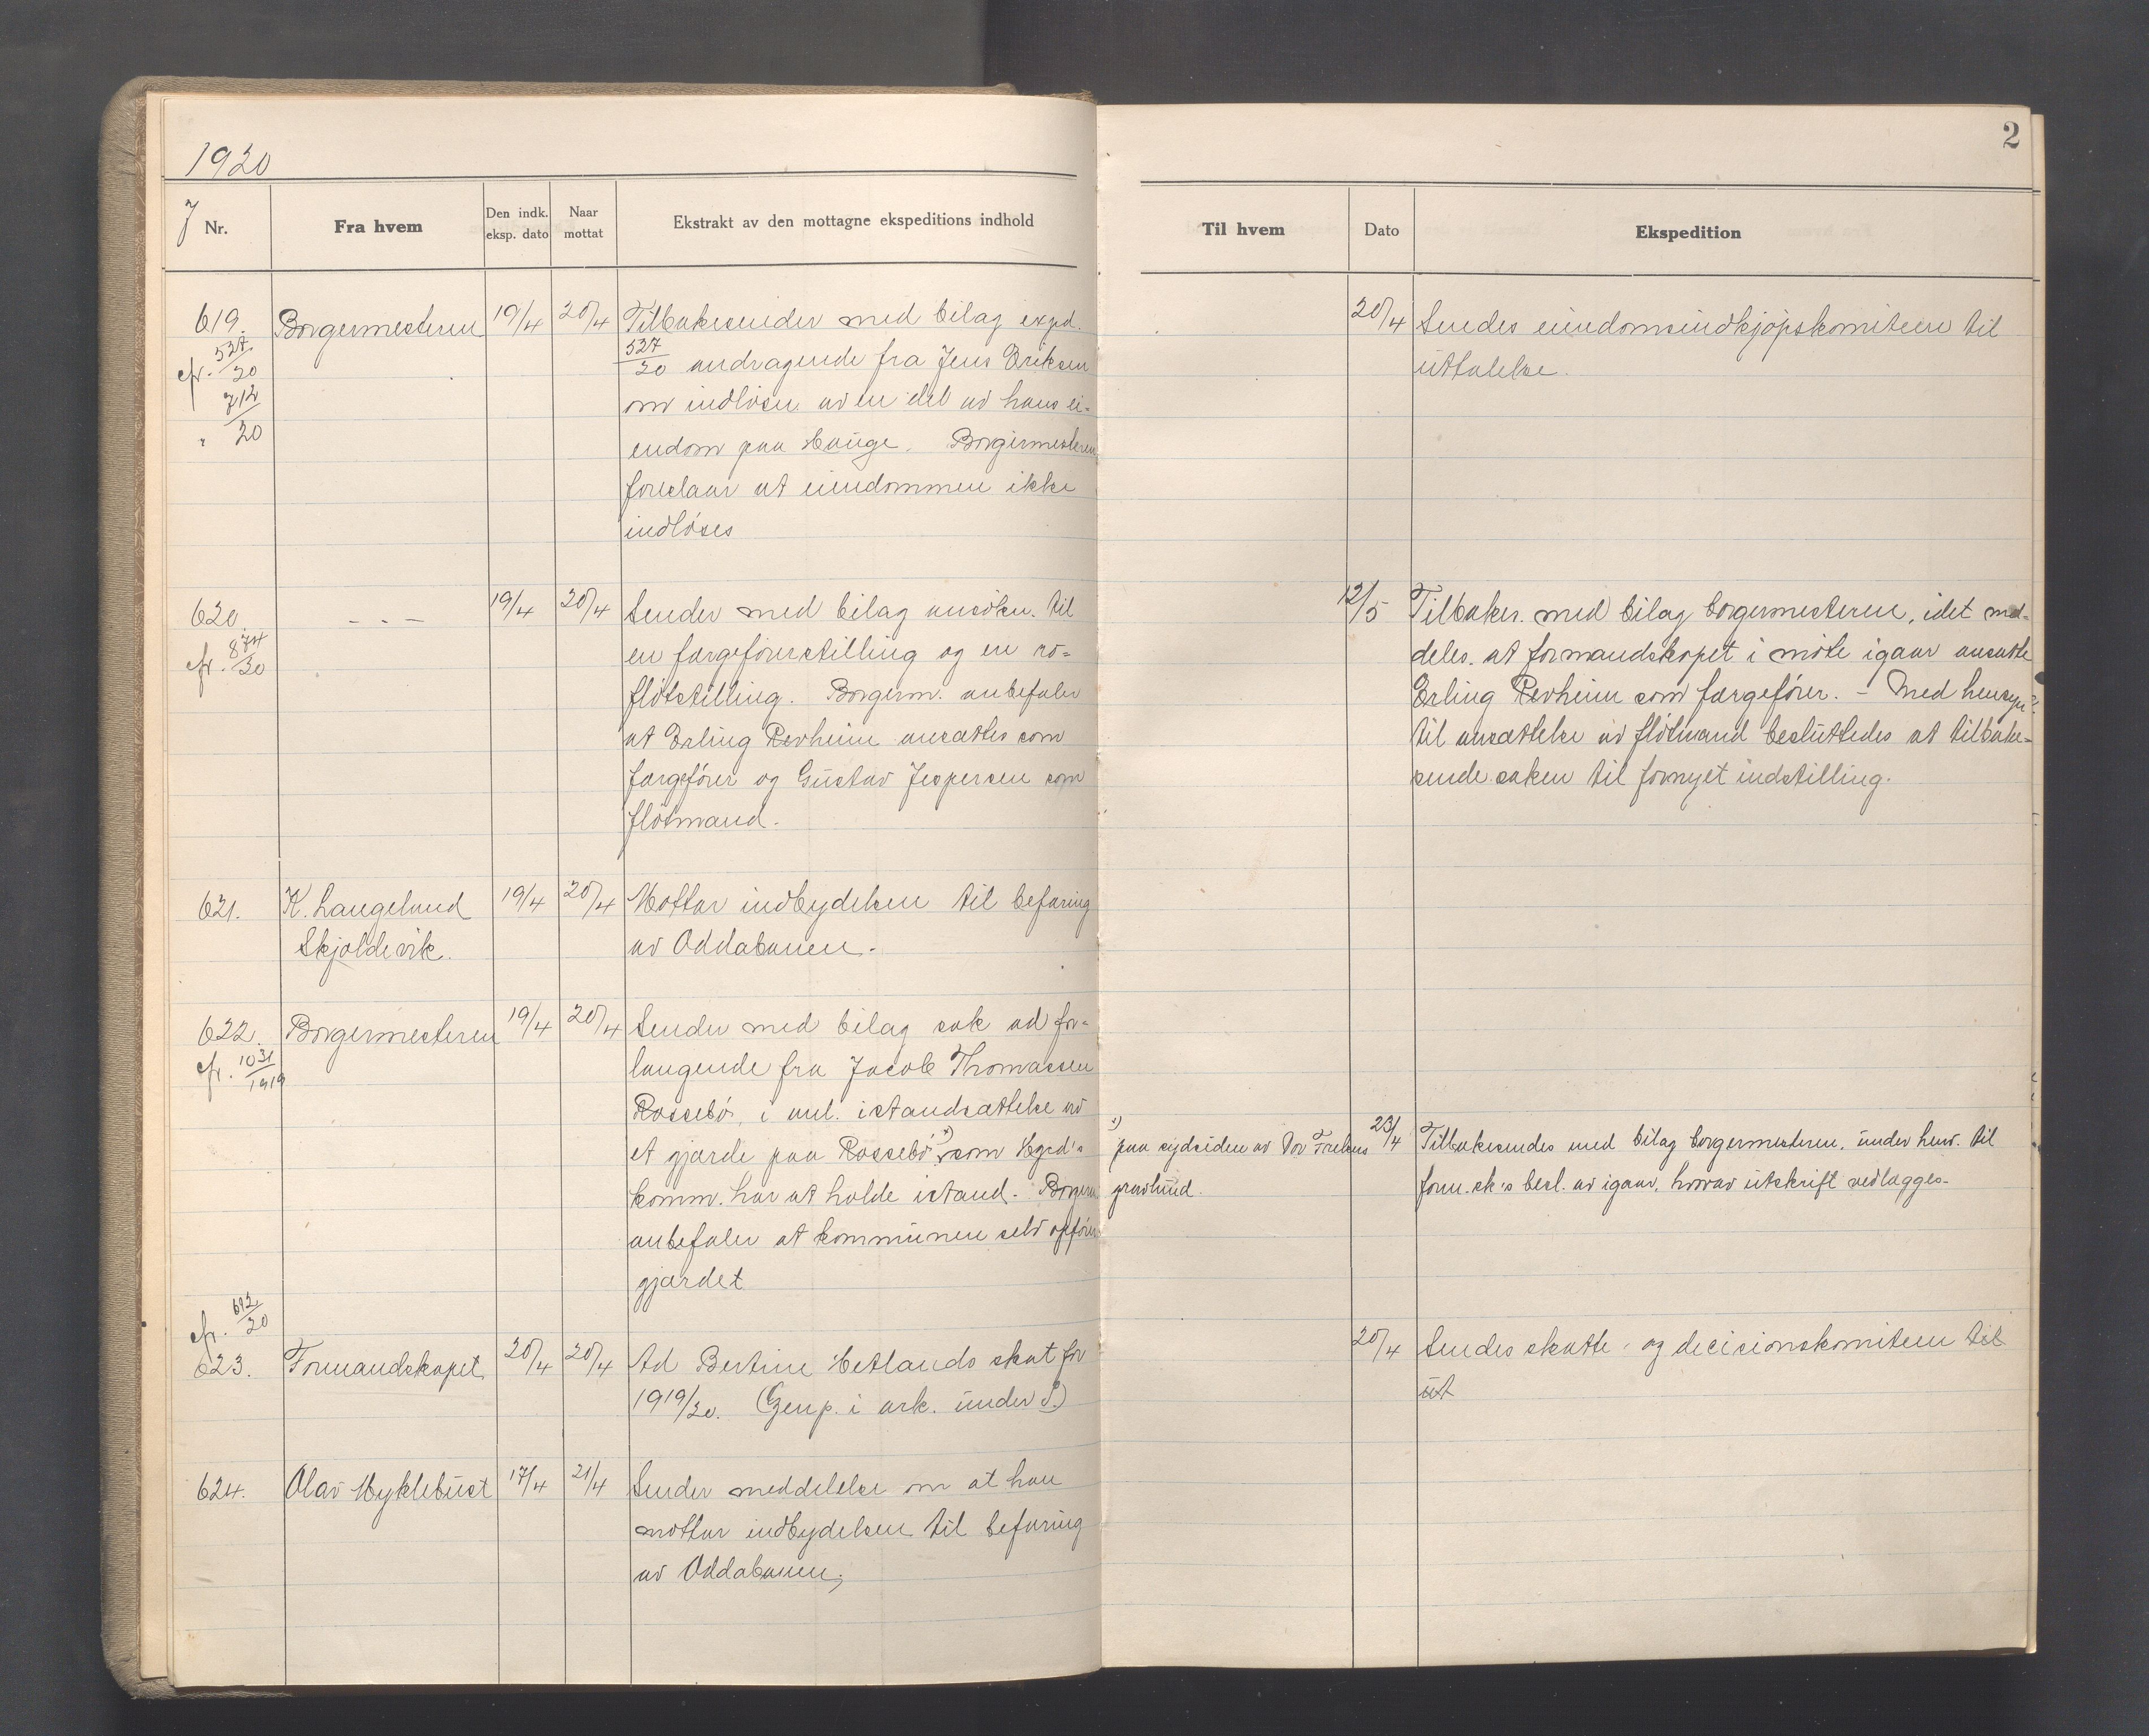 1920
2
J Nr.
Fra hvem
Den indk. eksp. dato
Naar mottat
Ekstrakt av den mottagne ekspeditions indhold
Til hvem
Dato
Ekspedition
619. Borgermesteren 19/4 20/4 Tilbakesender med bilag exped.
cfr. 527/20
527/20 andragende fra Jens Eriksen
712/20
om indløsn. av en del av hans ei-
endom paa Hauge. Borgermesteren
foreslaar at eiendommen ikke
indløses
20/4 Sendes eiendomsindkjøpskomiteen til
uttalelse.
620. - . - 19/4 20/4 Sender med bilag ansøkn. til
cfr. 874/20
en færgeførerstilling og en
fløtstilling. Borgerm. anbefaler
at Erling Revheim ansættes som
færgefører og Gustav Jespersen som
fløtmand.
12/5 Tilbakes. med bilag borgermesteren, idet med-
deles. at formandskapet i møte igaar ansatte
Erling Revheim som færgefører. - Med hensyn
til ansættelse av fløtmand besluttedes at tilbake-
sende saken til fornyet indstilling.
621. K. Langeland 19/4 20/4 Mottar indbydelsen til befaring
Skjoldevik.
av Oddabanen.
622. Borgermesteren 19/4 20/4 Sender med bilag sak ad for-
cfr. 1031/1919
langende fra Jacob Thomassen
Rossebø, i anl. istandsættelse av
et gjærde paa Rossebø x) som Hgsd's
komm. har at holde istand. Borgerm.
anbefaler at kommunen selv opfører
gjærdet
x) paa sydsiden av Vor Frelsers
gravlund.
23/4 Tilbakesendes med bilag borgermesteren, under henv. til
form.sk's besl. av igaar, hvorav utskrift vedlægges.
cfr. 612/20
623. Formandskapet 20/4 20/4 Ad Bertine Hetlands skat for
1919/20. (Genp. i ark. under S.)
20/4 Sendes skatte- og decisionskomiteen til
ut
624. Olav Myklebust 17/4 21/4 Sender meddelelse om at han
mottar indbydelsen til befaring
av Oddabanen.